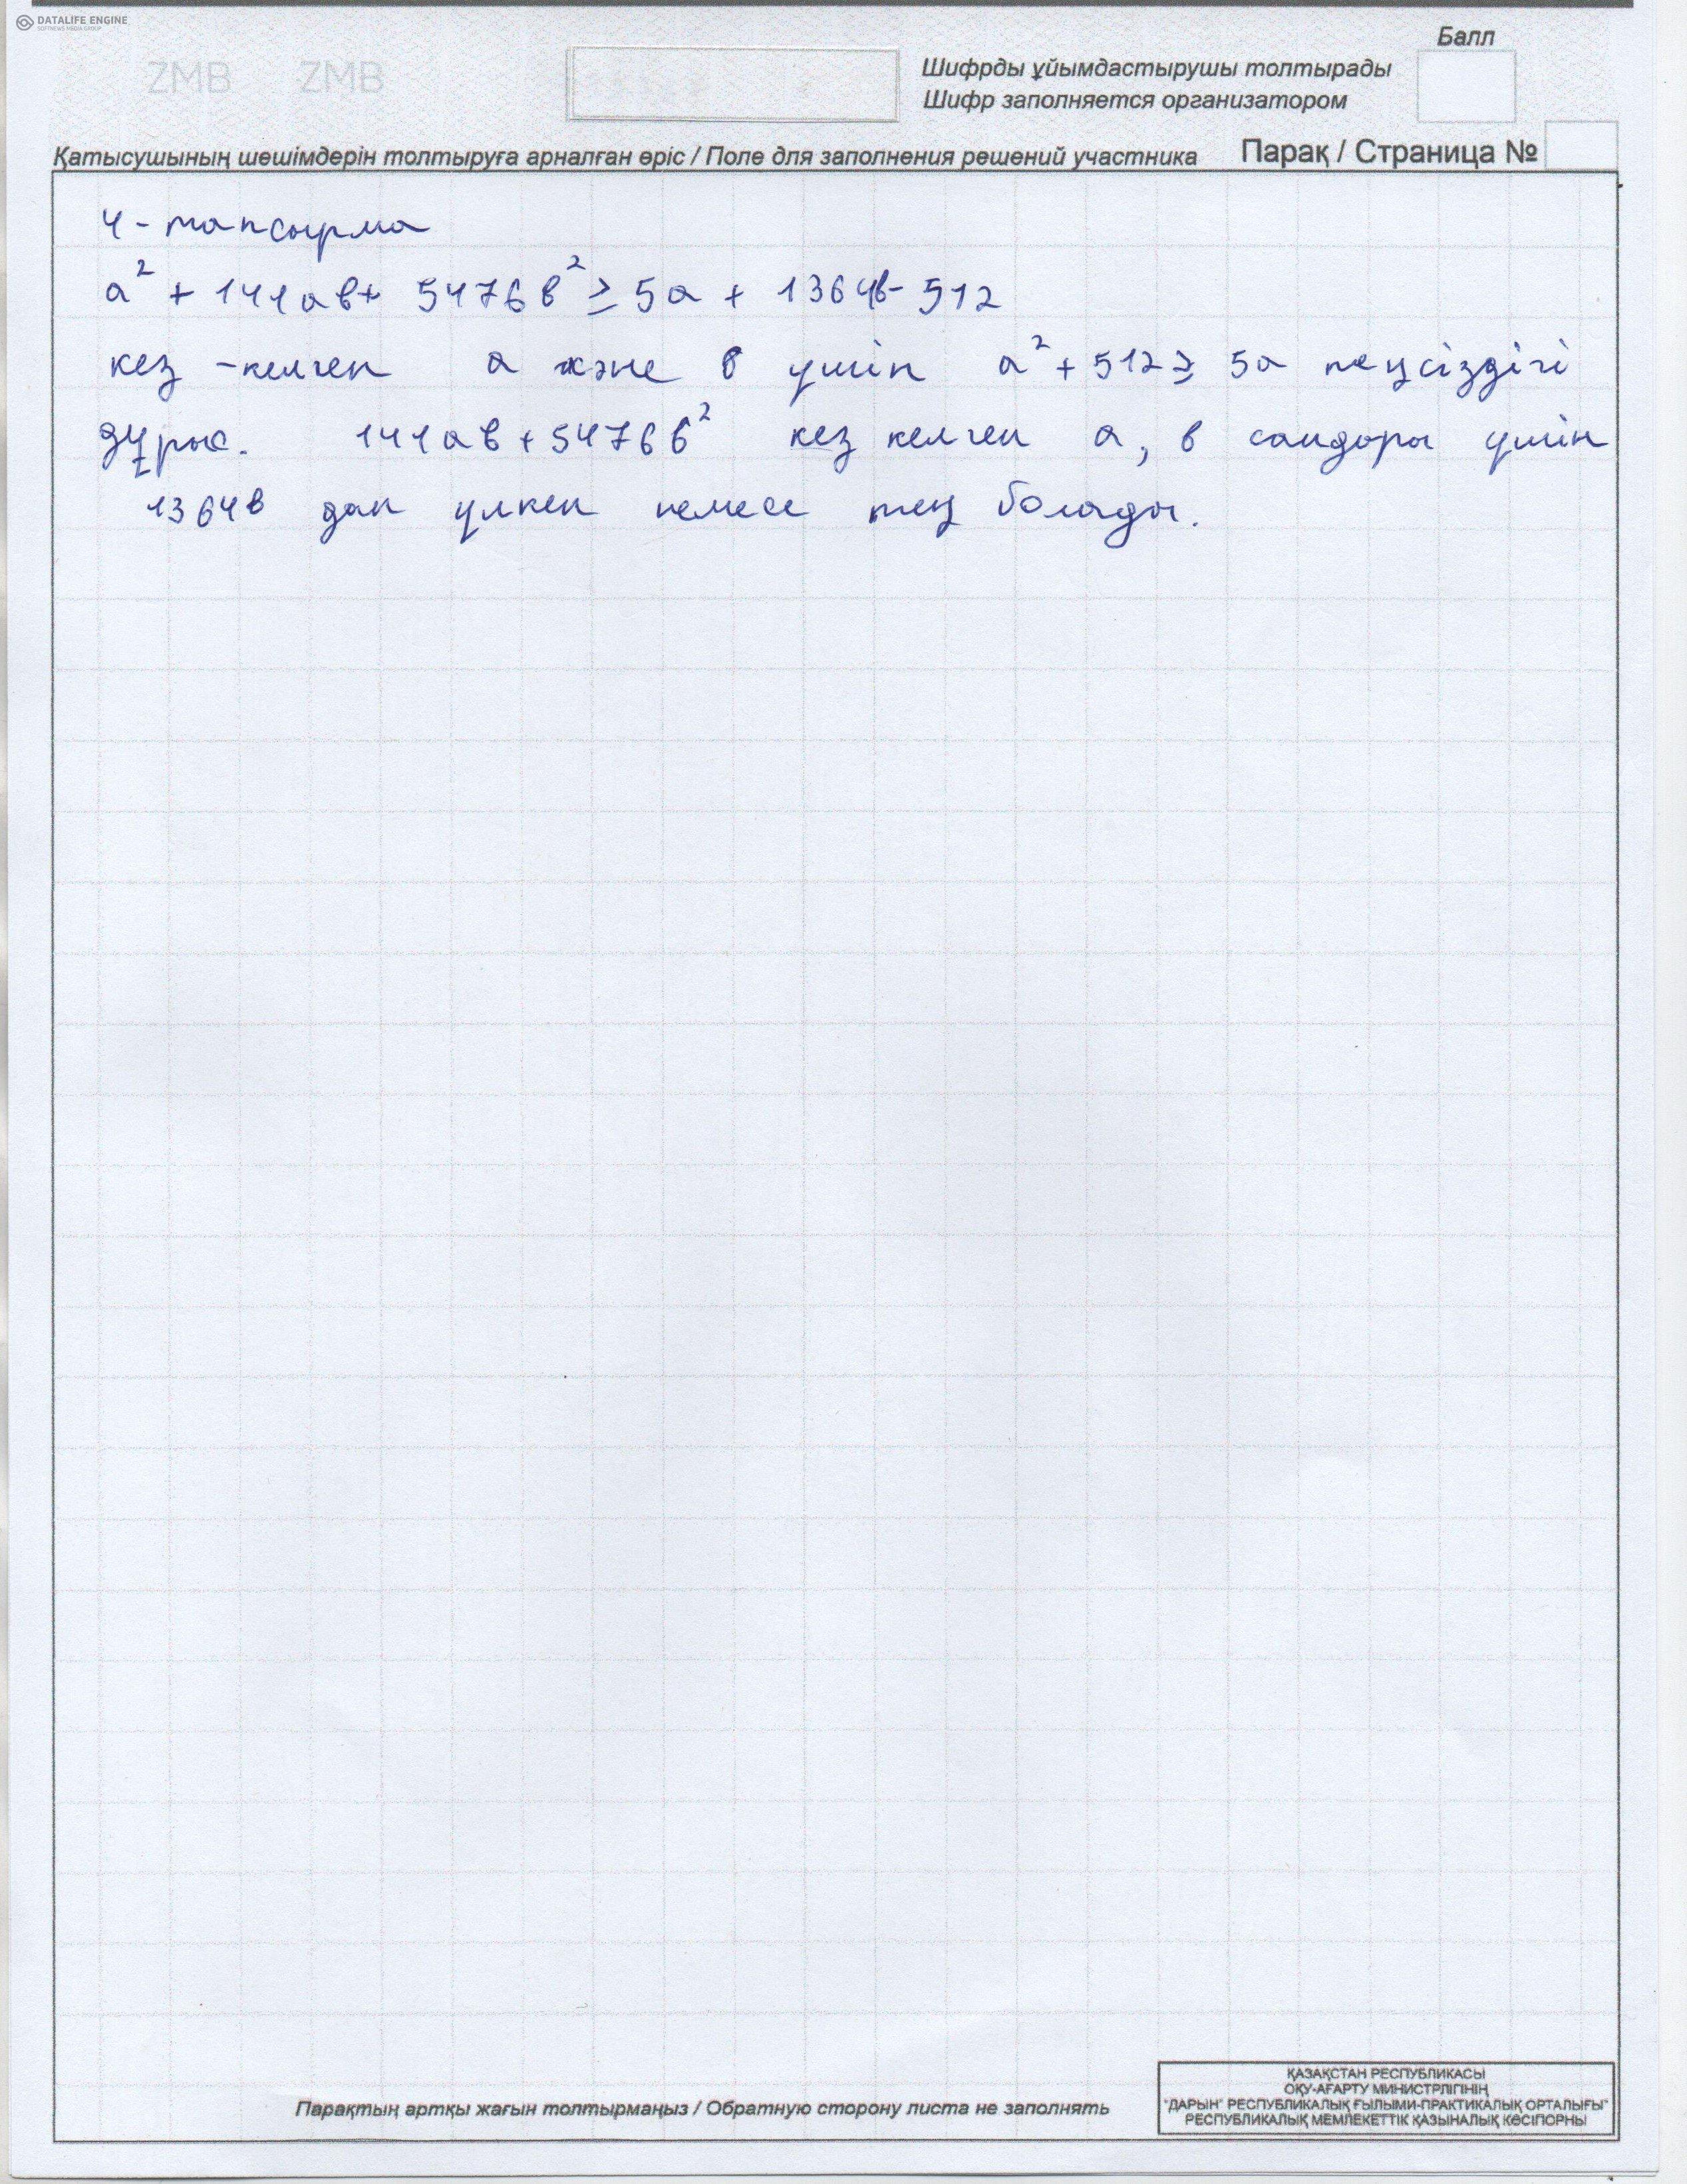 DATALIFE ENGINE
SOFTNEWS MEDIA GROUP
ZMB ZMB
Балл
Шифрды ұйымдастырушы толтырады
Шифр заполняется организатором
Қатысушының шешімдерін толтыруға арналған өріс / Поле для заполнения решений участника
Парақ / Страница №
4 - тапсырма
a² + 141ab + 5476b² ≥ 5a + 1364b - 512
кез - келген a және b үшін a² + 512 ≥ 5a теңсіздігі
дұрыс. 141ab + 5476b² кез келген a, b сандары үшін
1364b дан үлкен немесе тең болады.
Парақтың артқы жағын толтырмаңыз / Обратную сторону листа не заполнять
ҚАЗАҚСТАН РЕСПУБЛИКАСЫ
ОҚУ-АҒАРТУ МИНИСТРЛІГІНІҢ
"ДАРЫН" РЕСПУБЛИКАЛЫҚ ҒЫЛЫМИ-ПРАКТИКАЛЫҚ ОРТАЛЫҒЫ"
РЕСПУБЛИКАЛЫҚ МЕМЛЕКЕТТІК ҚАЗЫНАЛЫҚ КӘСІПОРНЫ